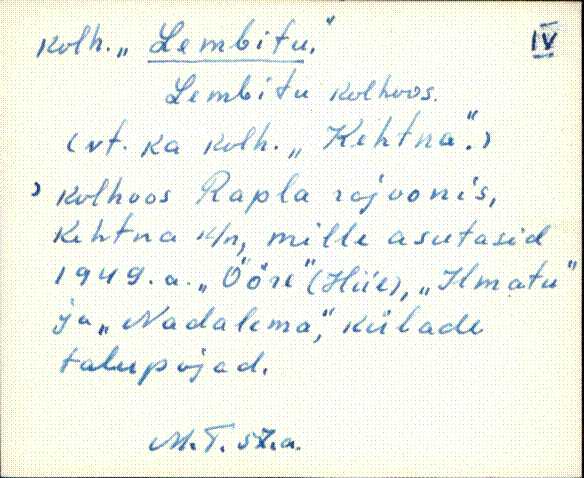 kolh. „Lembitu."
IV
Lembitu kolhoos.
(vt. ka kolh. „Kehtna".)
) kolhoos Rapla rajoonis,
Kehtna k/n, mille asutasid
1949. a. „Ööre" (Hiie), „Ilmatu"
ja „Nadalema", külade
talupojad.
M.T. 57.a.